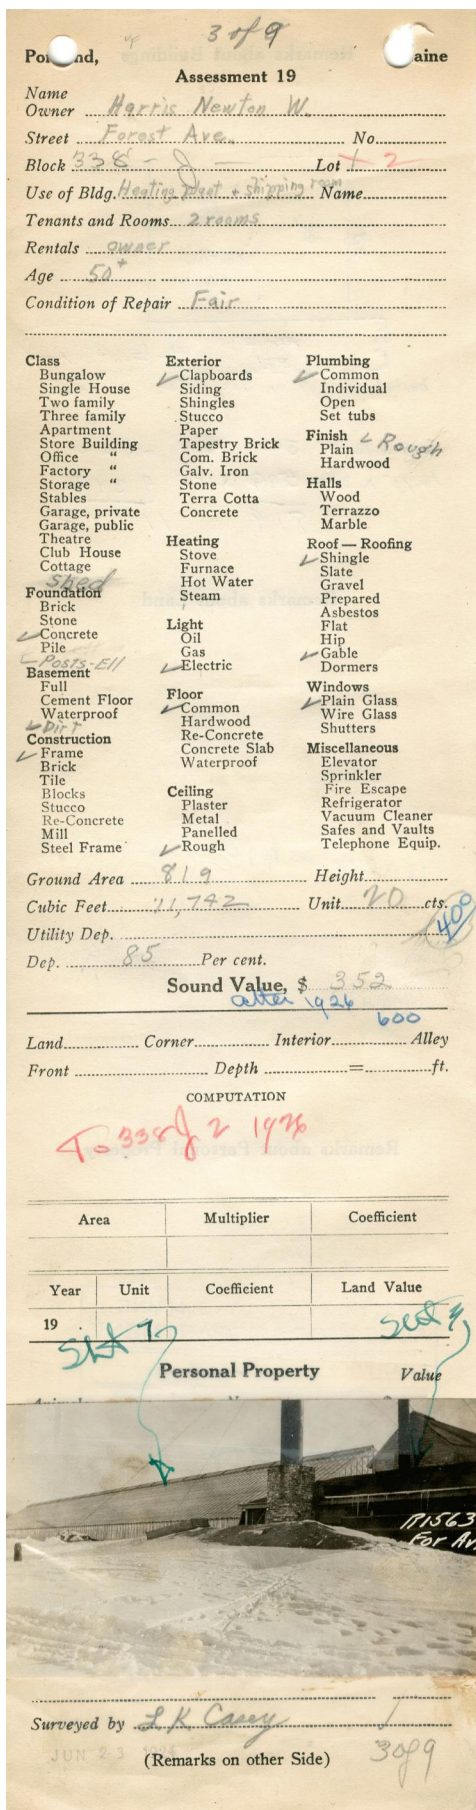 3 of 9
Portland, Maine
Assessment 19
Name
Owner Harris Newton W.
Street Forest Ave. No.
Block 338 - J - Lot 1 2
Use of Bldg. Heating plant + shipping room Name
Tenants and Rooms 2 rooms
Rentals owner
Age 50+
Condition of Repair Fair
Class
Bungalow
Single House
Two family
Three family
Apartment
Store Building
Office "
Factory "
Storage "
Stables
Garage, private
Garage, public
Theatre
Club House
Cottage
Shed
Foundation
Brick
Stone
✓ Concrete
Pile
✓ Posts-Ell
Basement
Full
Cement Floor
Waterproof
✓ Dirt
Construction
✓ Frame
Brick
Tile
Blocks
Stucco
Re-Concrete
Mill
Steel Frame
Exterior
✓ Clapboards
Siding
Shingles
Stucco
Paper
Tapestry Brick
Com. Brick
Galv. Iron
Stone
Terra Cotta
Concrete
Heating
Stove
Furnace
Hot Water
Steam
Light
Oil
Gas
✓ Electric
Floor
✓ Common
Hardwood
Re-Concrete
Concrete Slab
Waterproof
Ceiling
Plaster
Metal
Panelled
✓ Rough
Plumbing
✓ Common
Individual
Open
Set tubs
Finish ✓ Rough
Plain
Hardwood
Halls
Wood
Terrazzo
Marble
Roof — Roofing
✓ Shingle
Slate
Gravel
Prepared
Asbestos
Flat
Hip
✓ Gable
Dormers
Windows
✓ Plain Glass
Wire Glass
Shutters
Miscellaneous
Elevator
Sprinkler
Fire Escape
Refrigerator
Vacuum Cleaner
Safes and Vaults
Telephone Equip.
Ground Area 819 Height
Cubic Feet 11,742 Unit 20 cts.
400
Utility Dep.
Dep. 85 Per cent.
Sound Value, $ 352
after 1926
600
Land Corner Interior Alley
Front Depth = ft.
COMPUTATION
To 338 J 2 1926
Area Multiplier Coefficient
Year Unit Coefficient Land Value
19 .
Personal Property Value
R1563
For Av
Surveyed by L K Casey
JUN 23
(Remarks on other Side)
3 of 9